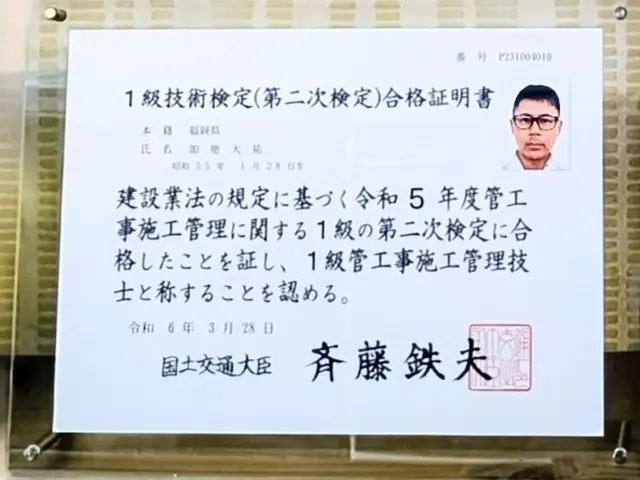 番 号 P231004010
1級技術検定(第二次検定)合格証明書
本 籍 福岡県
氏 名 加 地 大 祐
昭和 55 年 1 月 28 日生
建設業法の規定に基づく令和 5 年度管工
事施工管理に関する1級の第二次検定に合
格したことを証し、1級管工事施工管理技
士と称することを認める。
令和 6 年 3 月 28 日
国土交通大臣 斉藤鉄夫